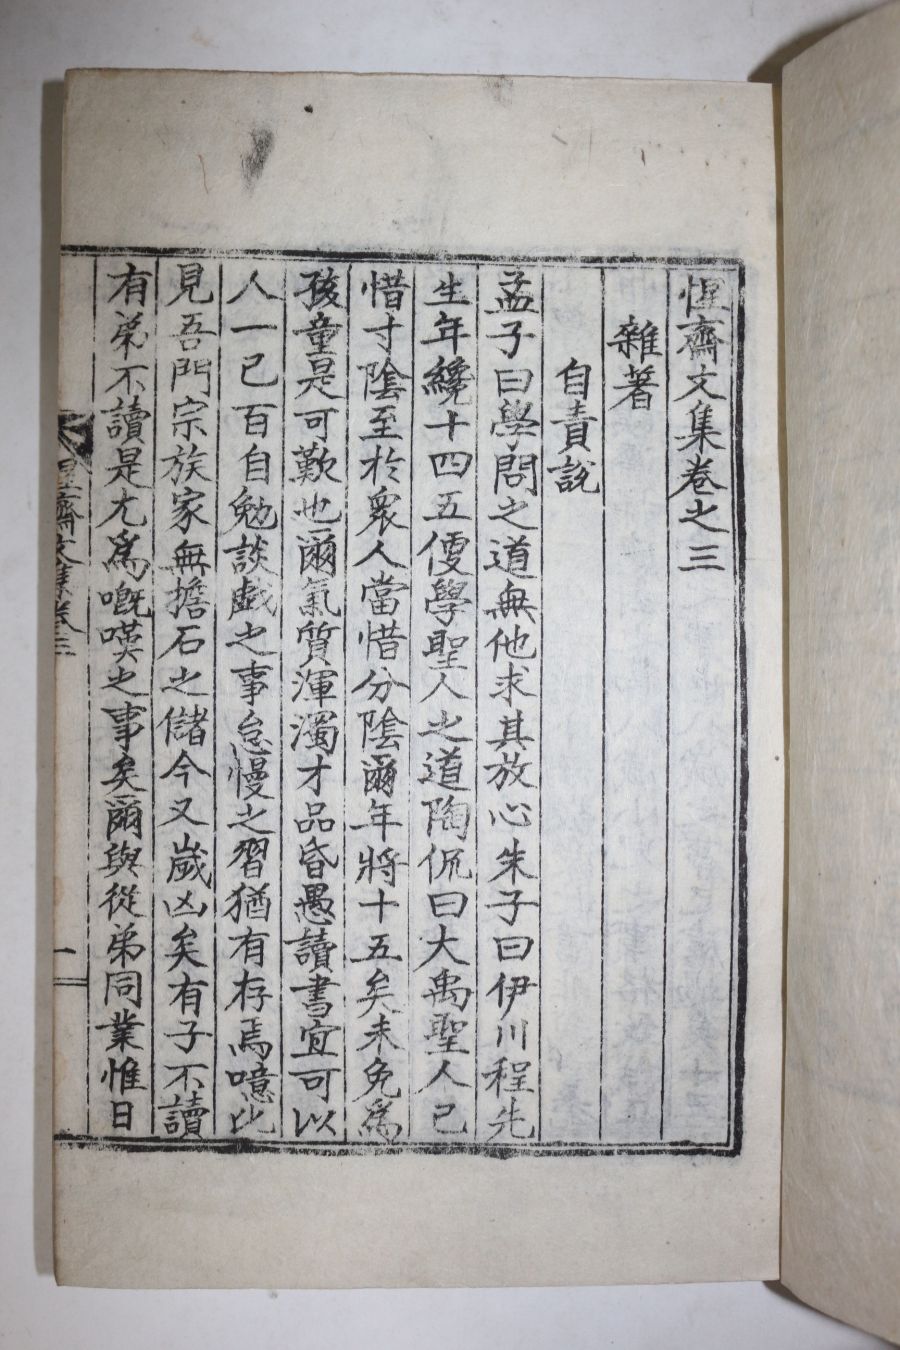 惺齋文集卷之三
雜著
自責說
孟子曰學問之道無他求其放心朱子曰伊川程先
生年纔十四五便學聖人之道陶侃曰大禹聖人已
惜寸陰至於衆人當惜分陰爾年將十五矣未免爲
孩童是可歎也爾氣質渾濁才品昏愚讀書宜可以
人一已百自勉談戱之事怠慢之習猶有存焉噫比
見吾門宗族家無擔石之儲今又歲凶矣有子不讀
有弟不讀是尤爲嘅嘆之事矣爾與從弟同業惟日
惺齋文集卷三
一